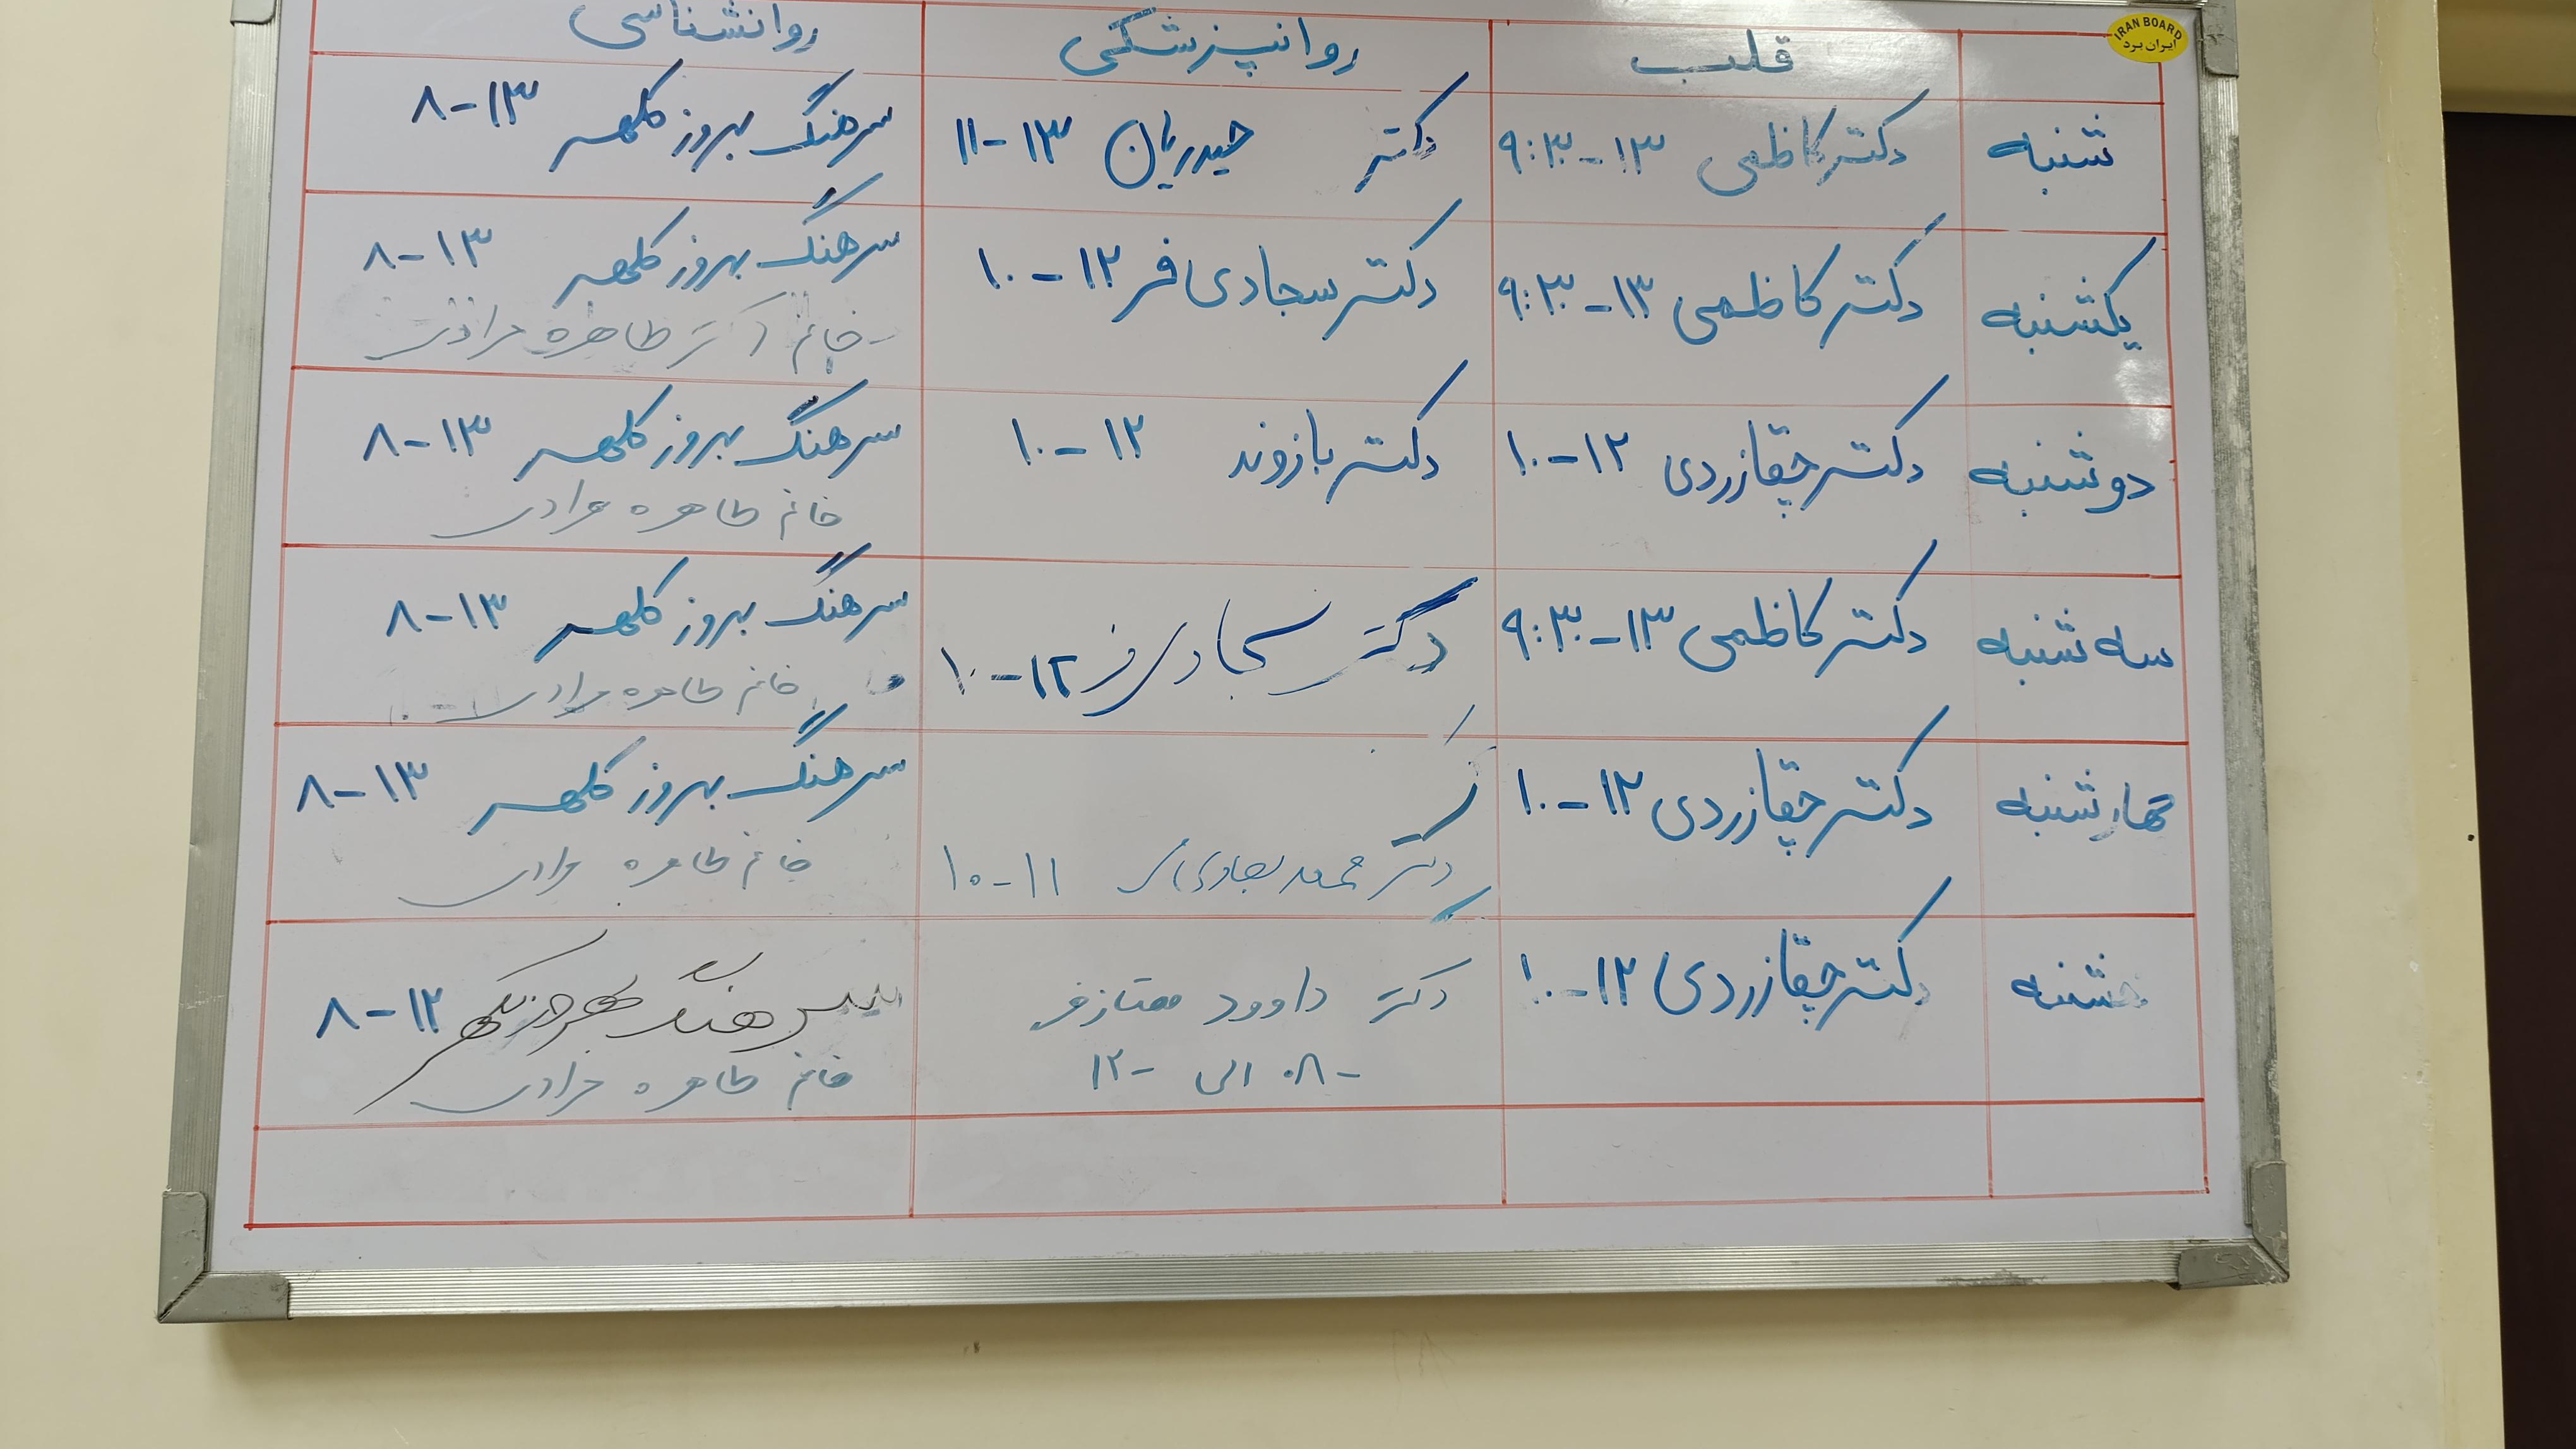 قلب روانپزشکی روانشناسی
IRAN BOARD
ایران برد
شنبه دکتر کاظمی ۱۳-۹:۳۰ دکتر حیدریان ۱۳-۱۱ سرهنگ بهروز کلهر ۱۳-۸
یکشنبه دکتر کاظمی ۱۳-۹:۳۰ دکتر سجادی فر ۱۲-۱۰ سرهنگ بهروز کلهر ۱۳-۸
خانم دکتر طاهره مرادی
دوشنبه دکتر چقازردی ۱۲-۱۰ دکتر بازوند ۱۲-۱۰ سرهنگ بهروز کلهر ۱۳-۸
خانم طاهره مرادی
سه شنبه دکتر کاظمی ۱۳-۹:۳۰ دکتر سجادی فر ۱۲-۱۰ سرهنگ بهروز کلهر ۱۳-۸
خانم طاهره مرادی
چهارشنبه دکتر چقازردی ۱۲-۱۰ سرهنگ بهروز کلهر ۱۳-۸
دکتر محمد سجادی فر ۱۱-۱۰ خانم طاهره مرادی
دکتر چقازردی ۱۲-۱۰ دکتر داوود ممتازفر سرهنگ بهروز کلهر ۱۲-۸
۰۸- الی ۱۲- خانم طاهره مرادی